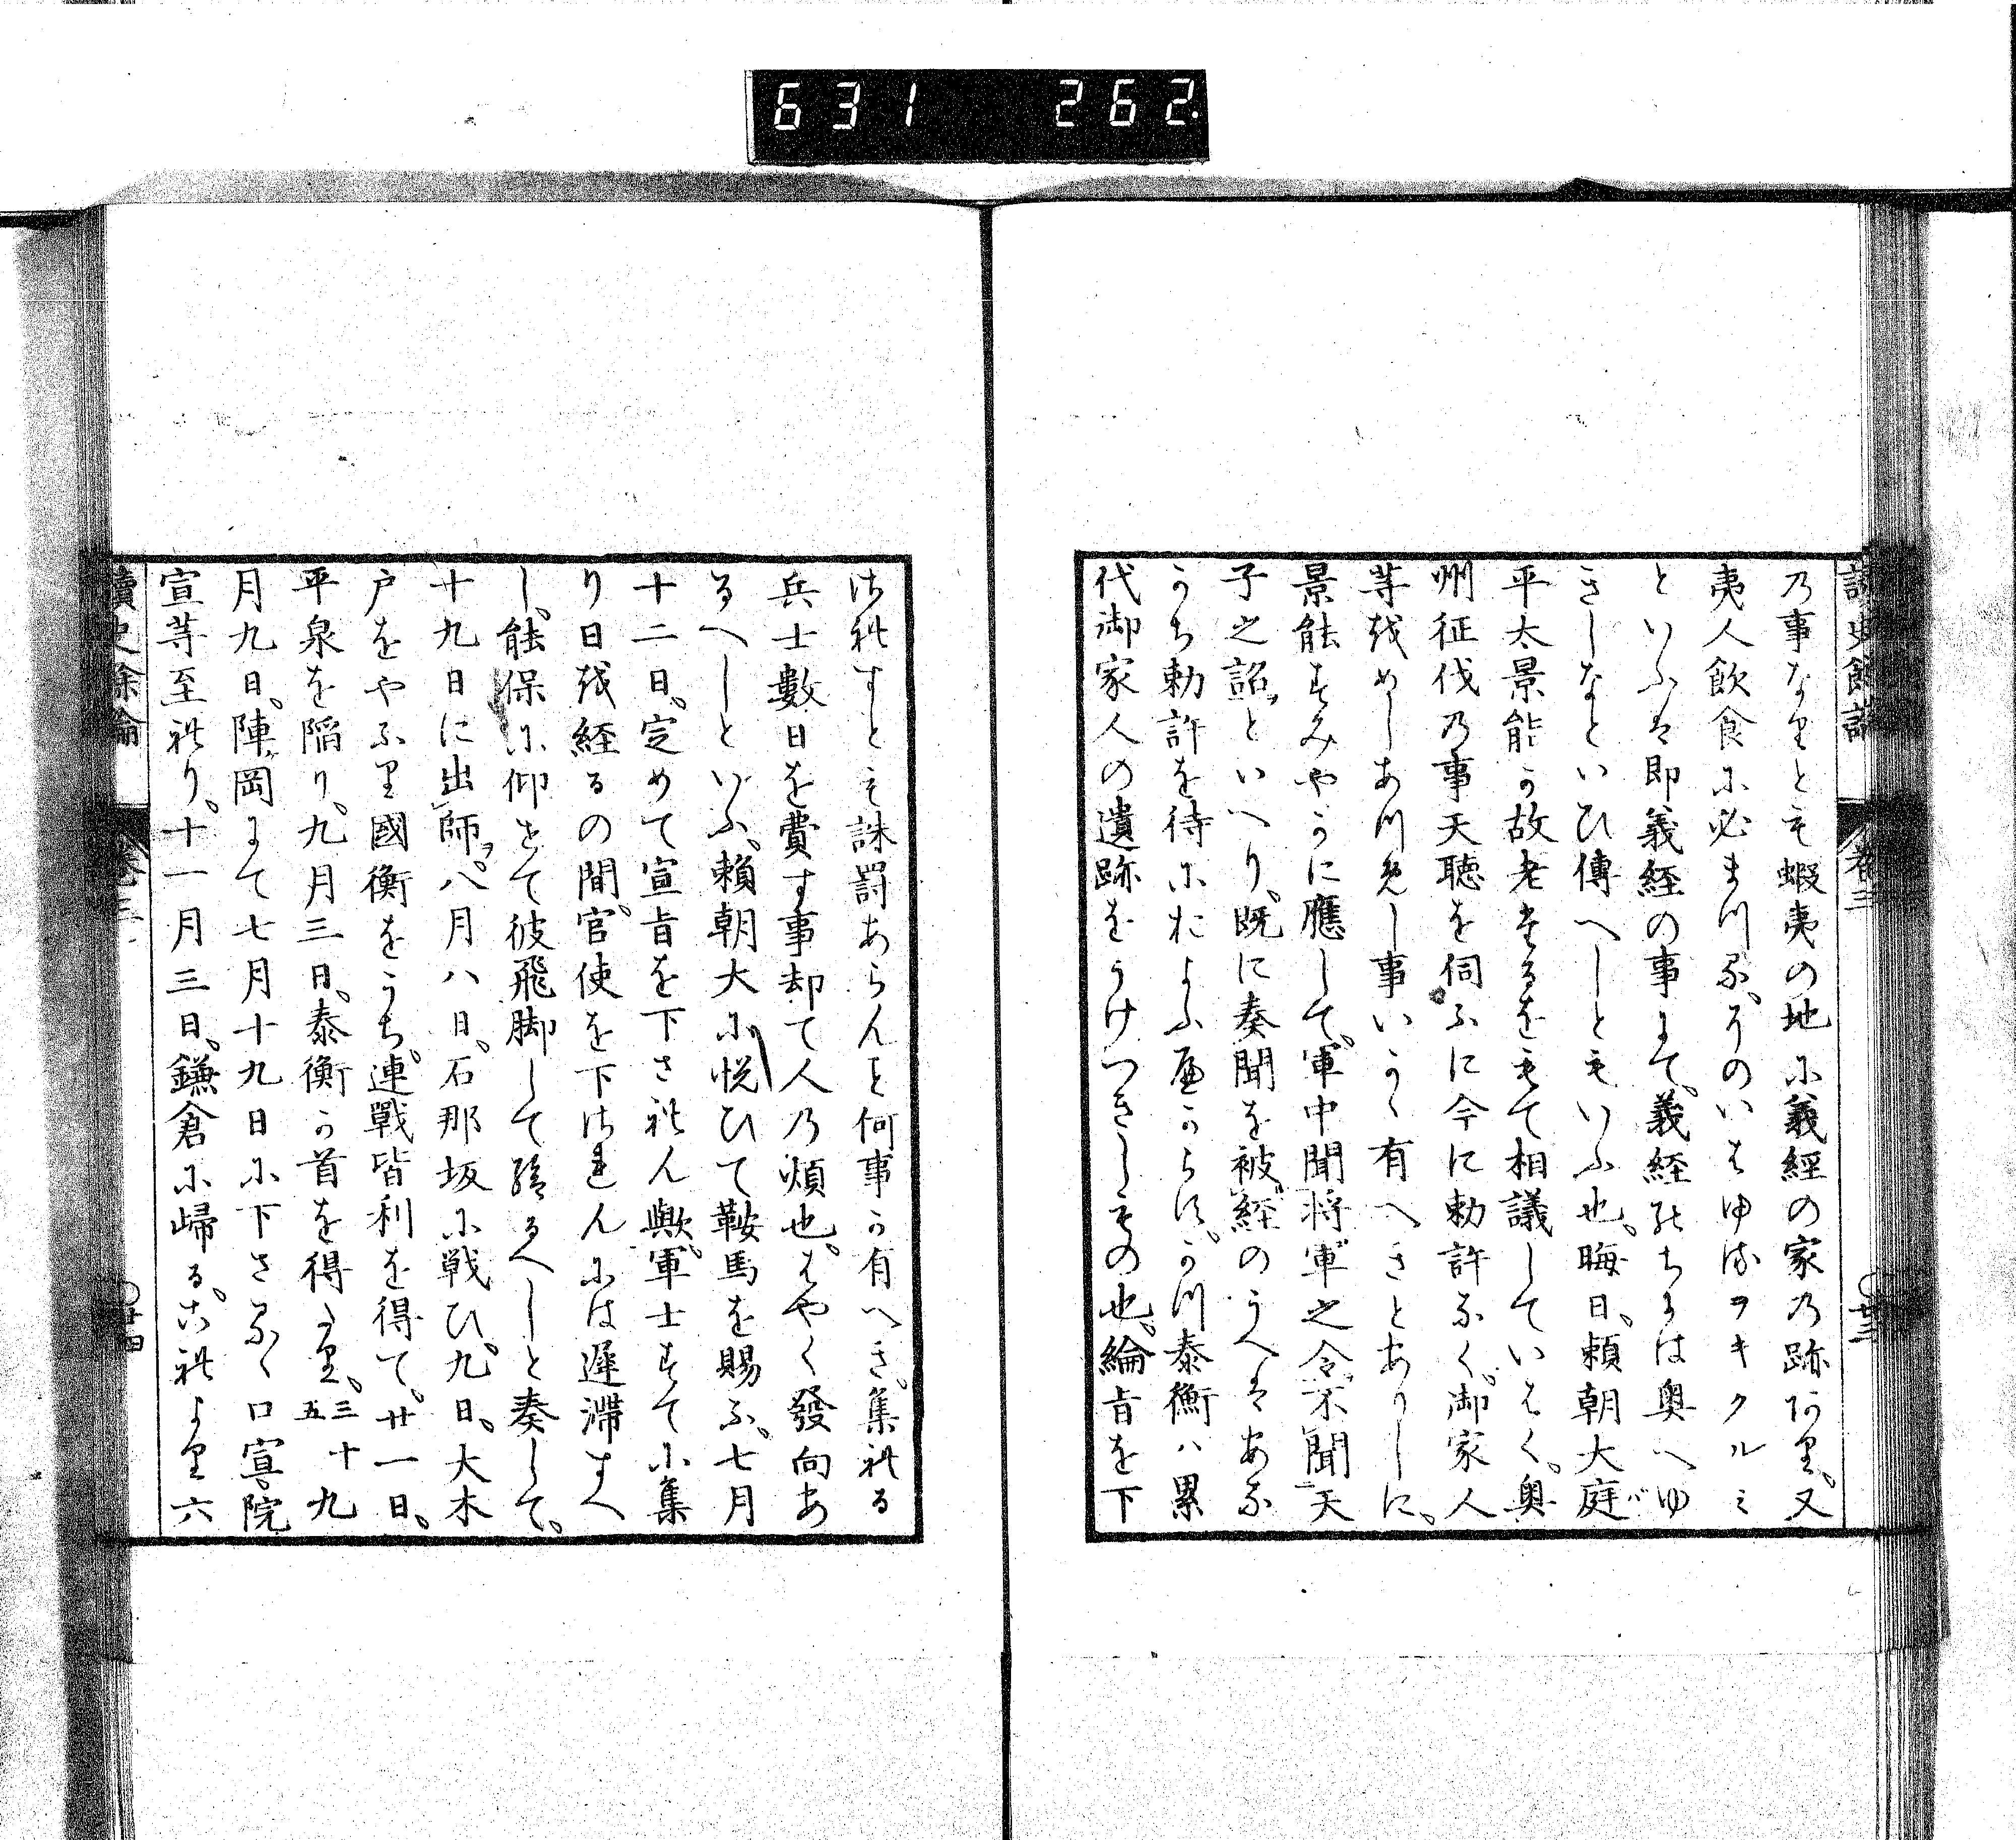 631 262.
讀史餘論 卷三 〇廿三
乃事なりとそ蝦夷の地に義經の家乃跡あり、又
夷人飲食に必まつる、そのいはゆるヲキクルミ
といふは即義経の事にて、義経のちには奥へゆ
きしなといひ傳へしともいふ也。晦日、頼朝大庭
平太景能か故老たるをもて相議していはく、奥
州征伐乃事天聴を伺ふに今に勅許なく、御家人
等越めしあつめし事いかゝ有へきとありしに。
景能すみやかに應して、軍中聞将軍之令不聞天
子之詔といへり、既に奏聞を被経のうへはあな
かち勅許を待におよふへからす、かつ泰衡ハ累
代御家人の遺跡をうけつきしもの也、綸旨を下
されすとも誅罰あらんに何事か有へき、集れる
兵士數日を費す事却て人乃煩也、はやく發向あ
るへしといふ、頼朝大に悦ひて鞍馬を賜ふ、七月
十二日、定めて宣旨を下されん歟、軍士すてに集
り日越経るの間、官使を下されんには遅滞すへ
し、能保に仰せて彼飛脚して給るへしと奏して、
十九日に出師、八月八日、石那坂に戦ひ、九日、大木
戸をやふり國衡をうち、連戰皆利を得て、廿一日、
平泉を陥り、九月三日、泰衡か首を得たり、三十五 九
月九日、陣岡にて七月十九日に下さるゝ口宣、院
宣等至れり、十一月三日、鎌倉に歸る、これより六
讀史餘論 卷三 〇廿四